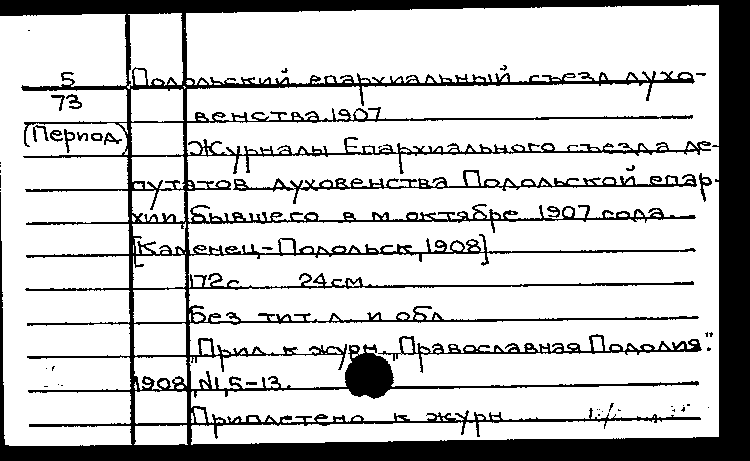 5 Подольский епархиальный съезд духо-
73 венства. 1907
(Период) Журналы Епархиального съезда де-
путатов духовенства Подольской епар-
хии, бывшего в м. октябре 1907 года.
[Каменец-Подольск, 1908]
172 с. 24 см.
Без тит. л. и обл.
"Прил. к журн. "Православная Подолия".
1908, №1, 5-13.
Приплетено к журн